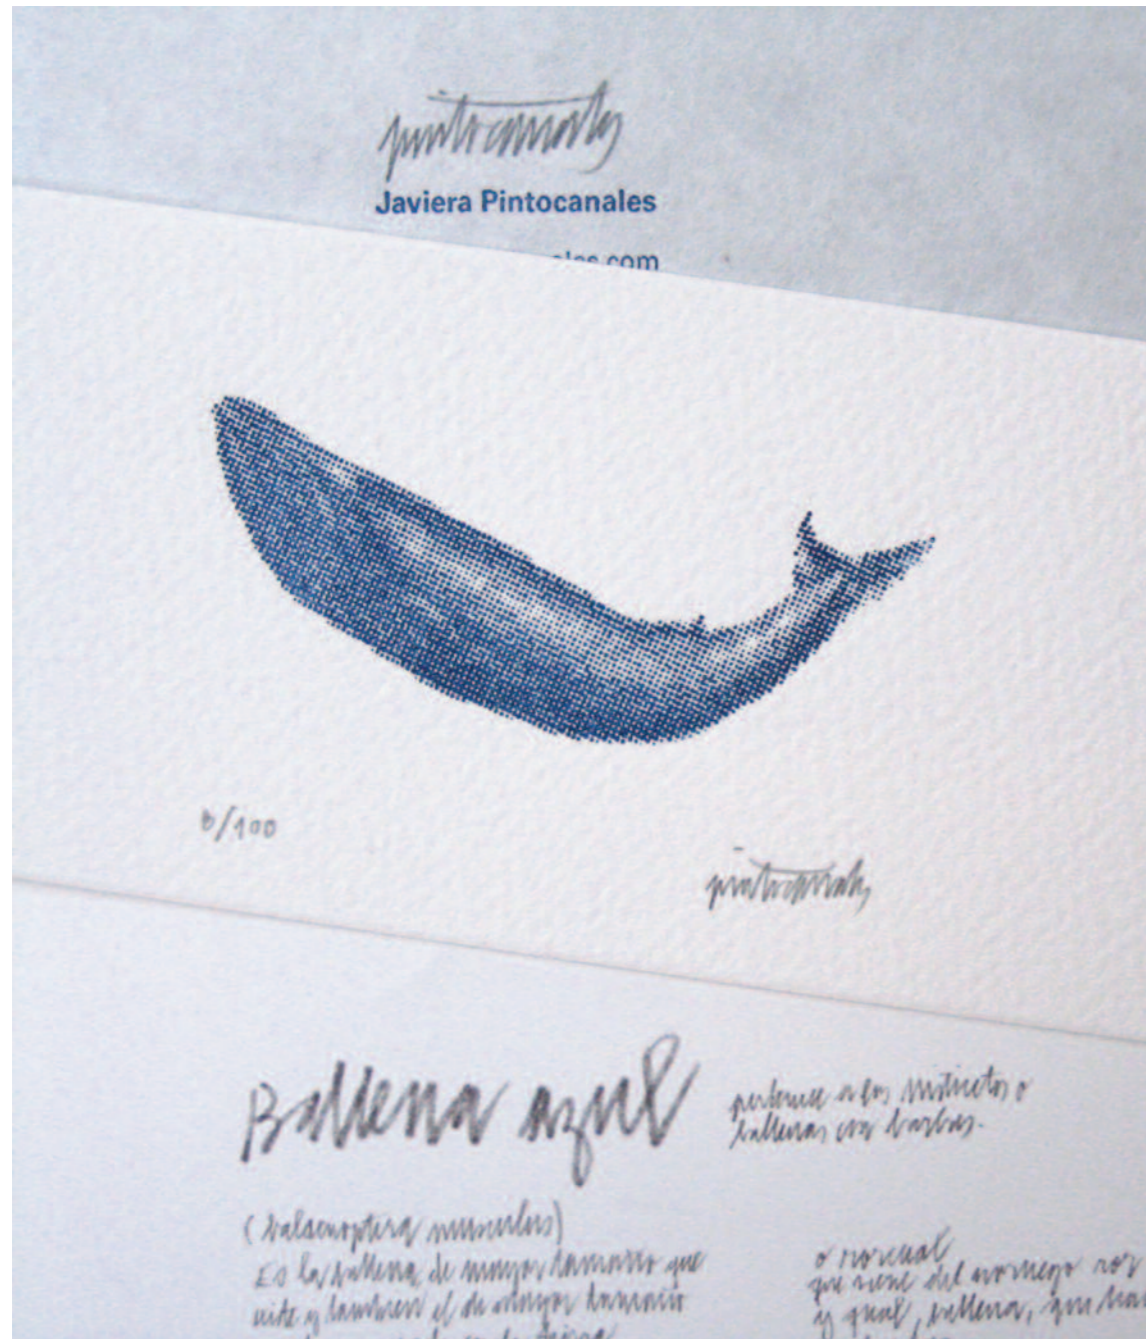 pintocanales
Javiera Pintocanales
ales.com
6/100
pintocanales
Ballena azul
pertenece a los misticetos o
ballenas con barbas.
(balaenoptera musculus)
Es la ballena de mayor tamaño que
existe y también el de mayor tamaño
o rorcual
que viene del noruego ror
y qual, ballena, que